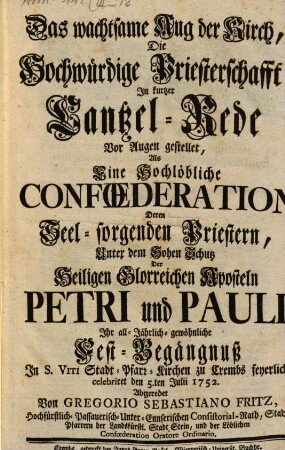 Das wachtsame Aug der Kirch,
Die
Hochwürdige Priesterschafft
In kurtzer
Cantzel-Rede
Vor Augen gestellet,
Als
Eine Hochlöbliche
CONFŒDERATION
Deren
Seel-sorgenden Priestern,
Unter dem Hohen Schutz
Der
Heiligen Glorreichen Aposteln
PETRI und PAULI
Ihr all-Jährlich-gewöhnliche
Fest-Begängnuß
In S. VITI Stadt-Pfarr-Kirchen zu Crembs feyerlich
celebriret den 5.ten Julii 1752.
Abgeredet
Von GREGORIO SEBASTIANO FRITZ,
Hochfürstlich-Passauerisch-Unter-Ennserischen Consistorial-Rath, Stadt-
Pfarrern der Landsfürstl. Stadt Stein, und der Löblichen
Confœderation Oratore Ordinario.
Crembs, gedruckt bey